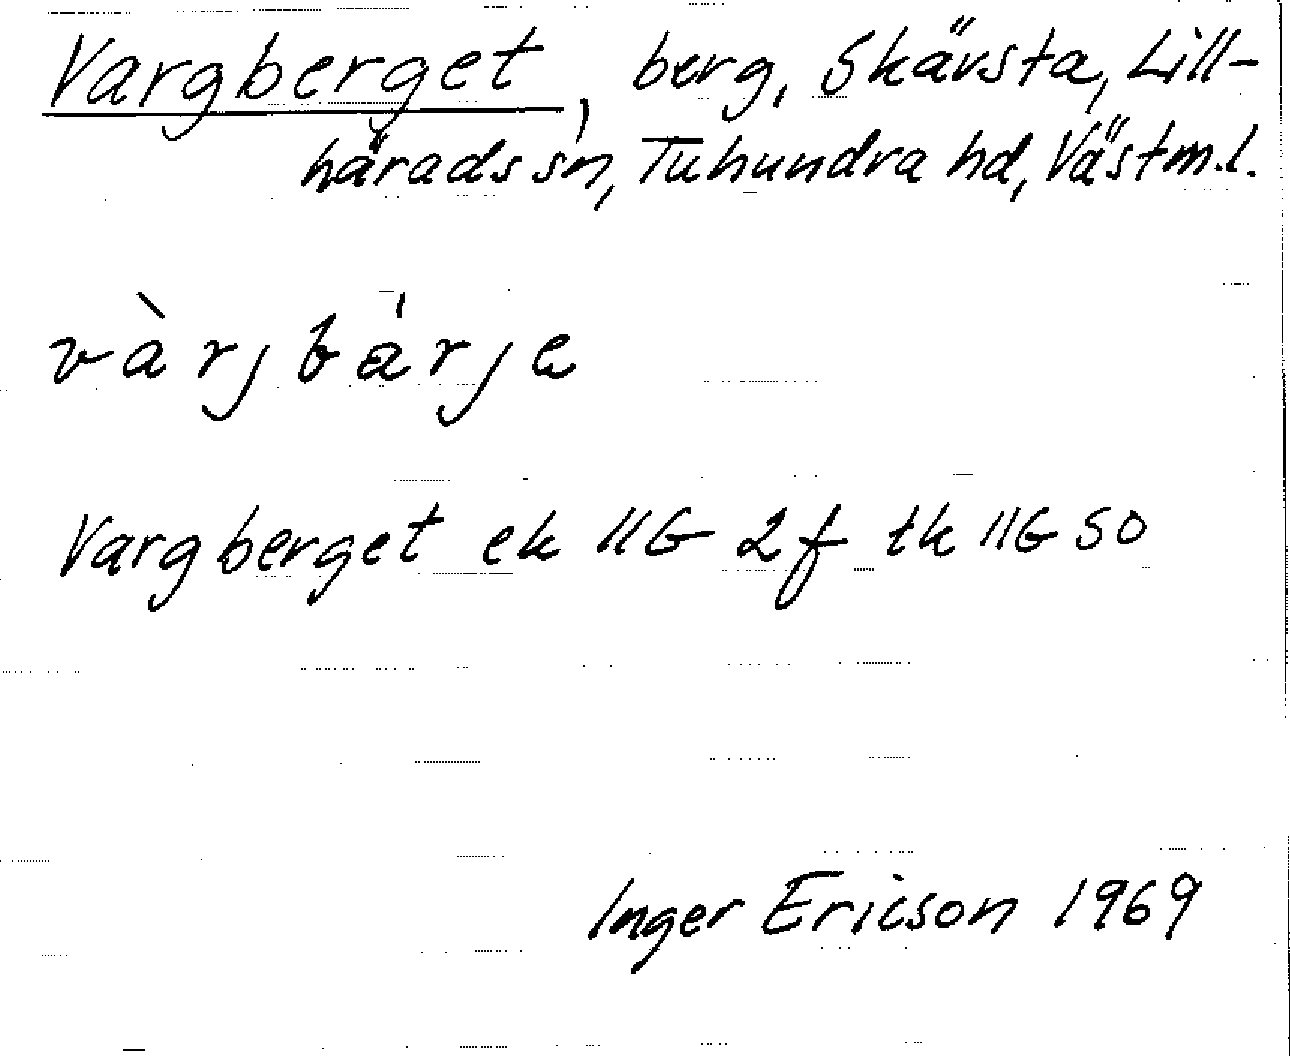 Vargberget, berg, Skävsta, Lill-
härads sn, Tuhundra hd, Västm.l.
vàrjbárje
Vargberget ek 11G 2f tk 11G SO
Inger Ericson 1969